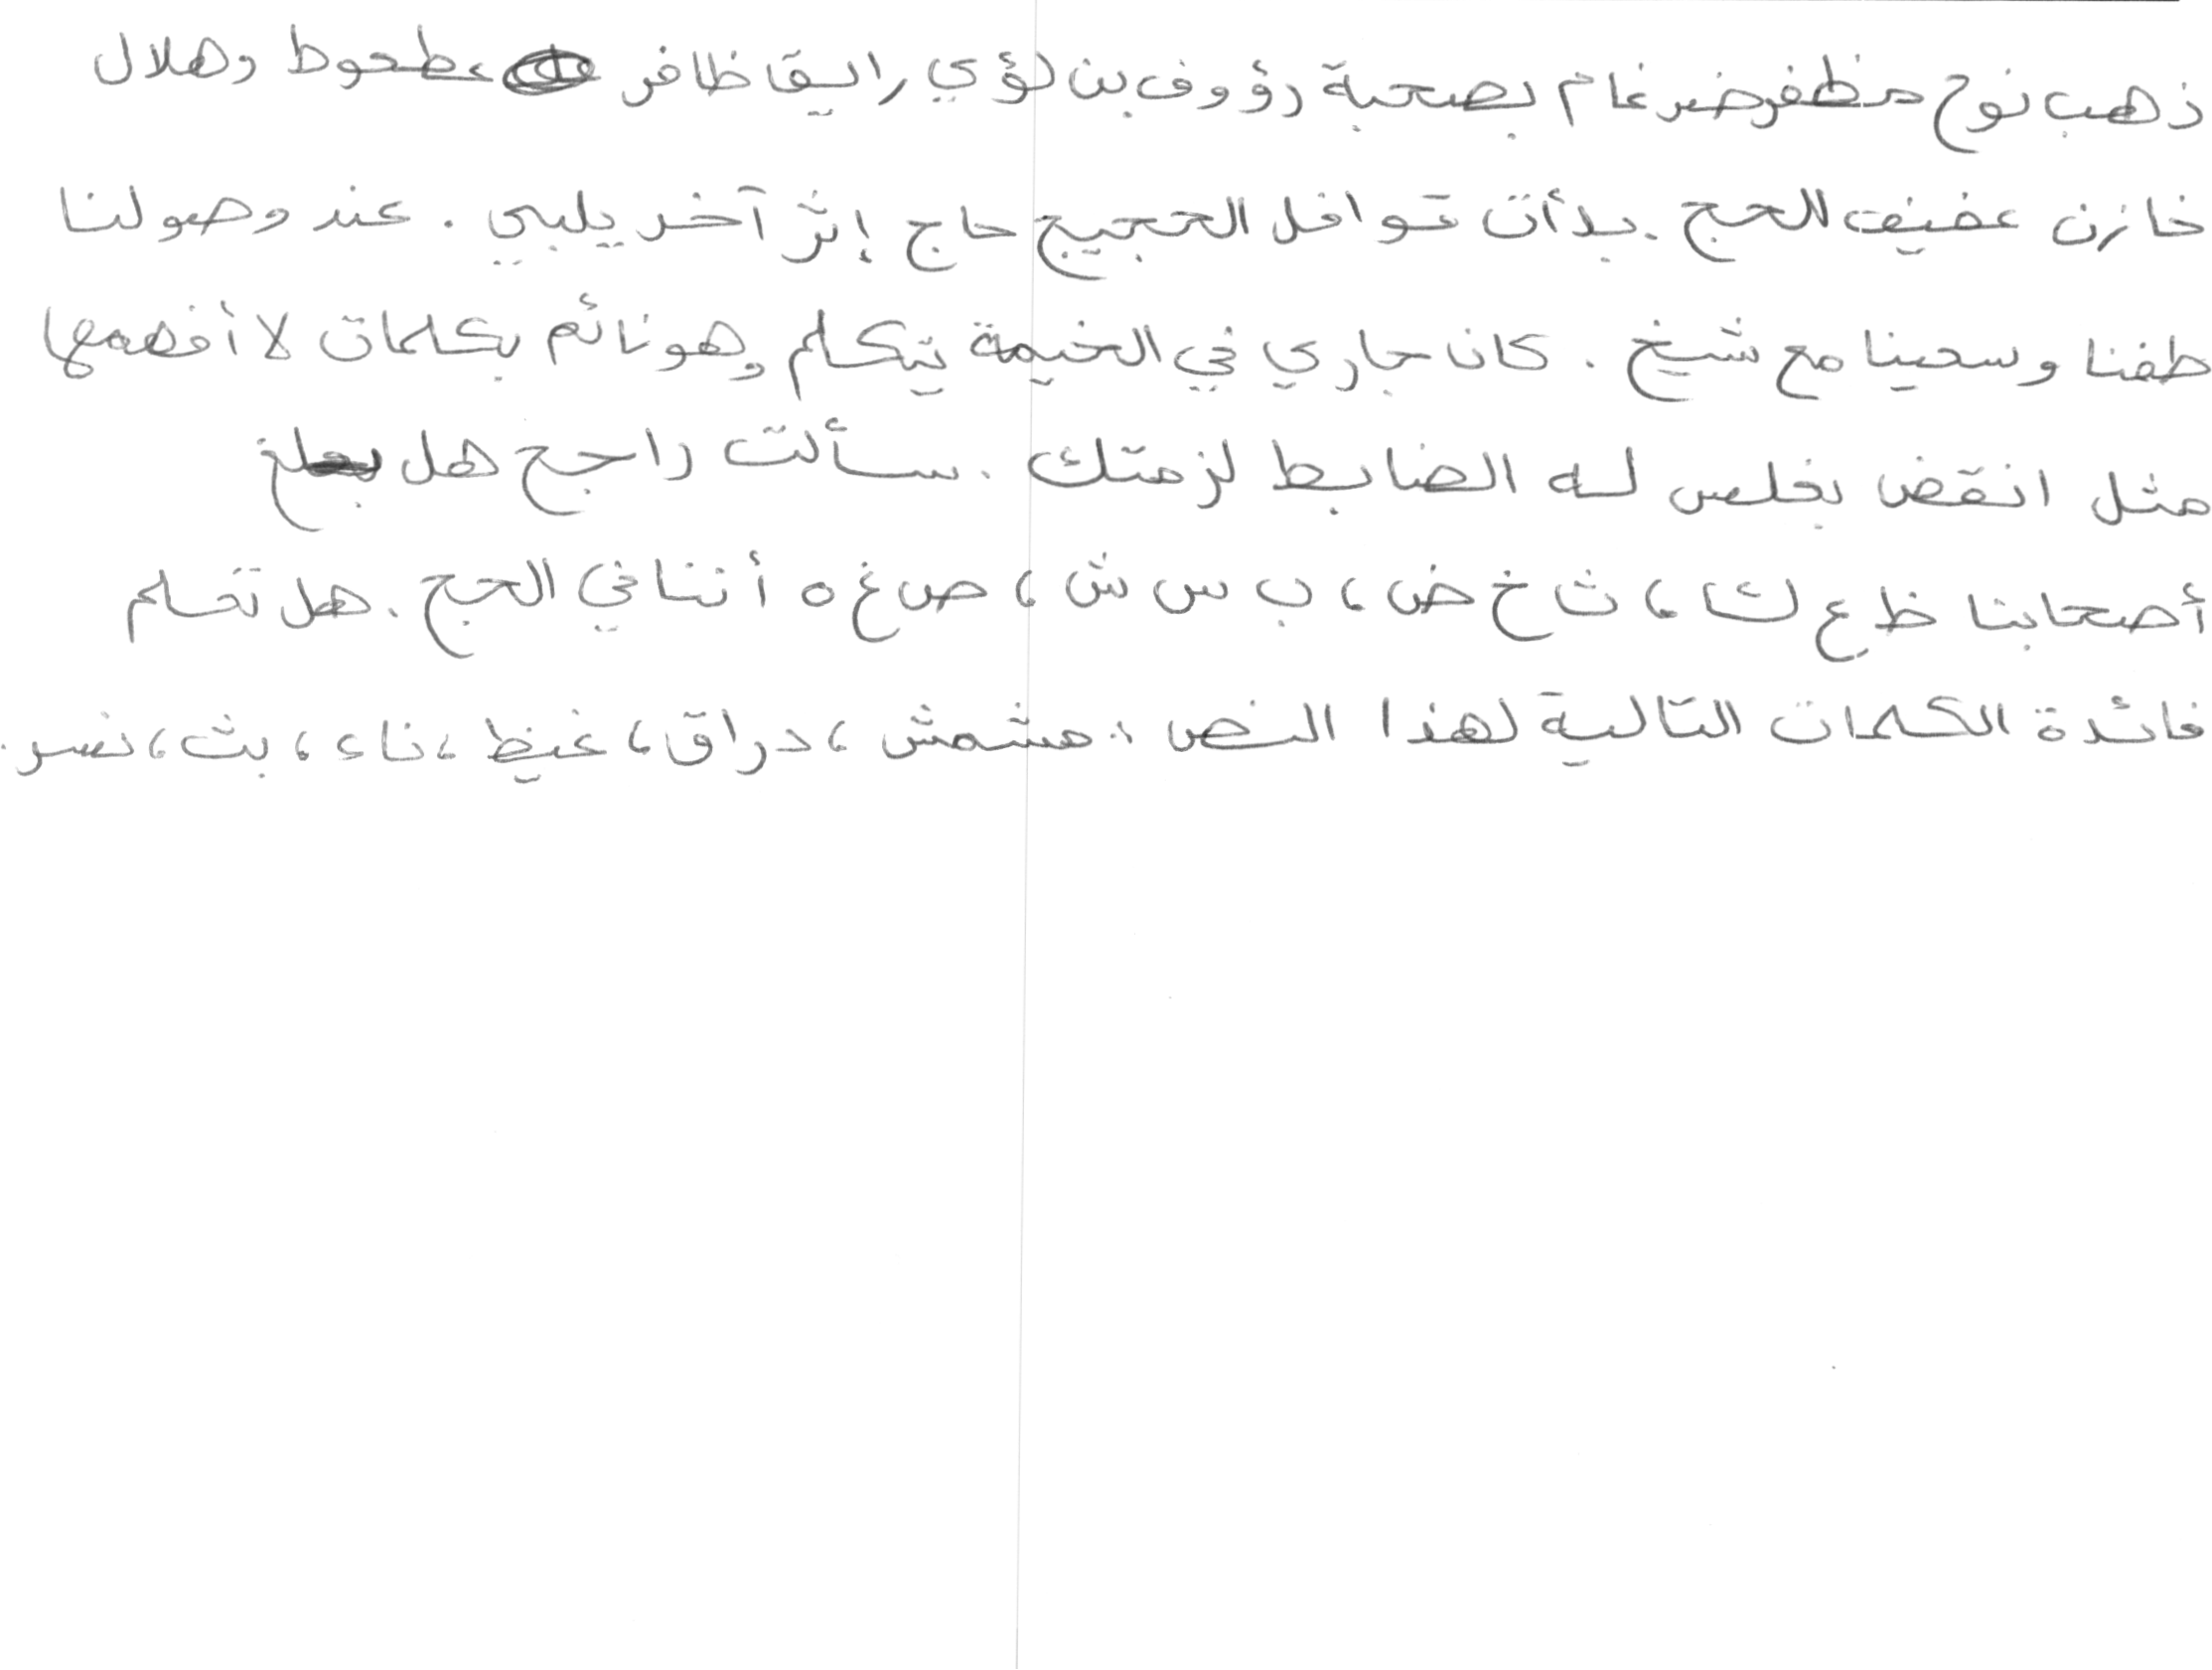 ذهب نوح مظفر ضرغام بصحبة رؤوف بن لؤي راليقا ظافر عطعوط وهلال
خازن عفيف للحج . بدأت قوافل الحجيج حاج إثر آخر يلبي . عند وصولنا
طفنا وسعينا مع شيخ . كان جاري في الخيمة يتكلم وهو نائم بكلمات لا أفهمها
مثل انقض بخلص له الضابط لزمتك . سألت راجح هل بلغ
أصحابنا ظ ع ك ، ث خ ض ، ب س ش ، ص غ ه أننا في الحج . هل تعلم
فائدة الكلمات التالية لهذا النص : مشمش ، دراق ، غيظ ، ناء ، بث ، نسر .